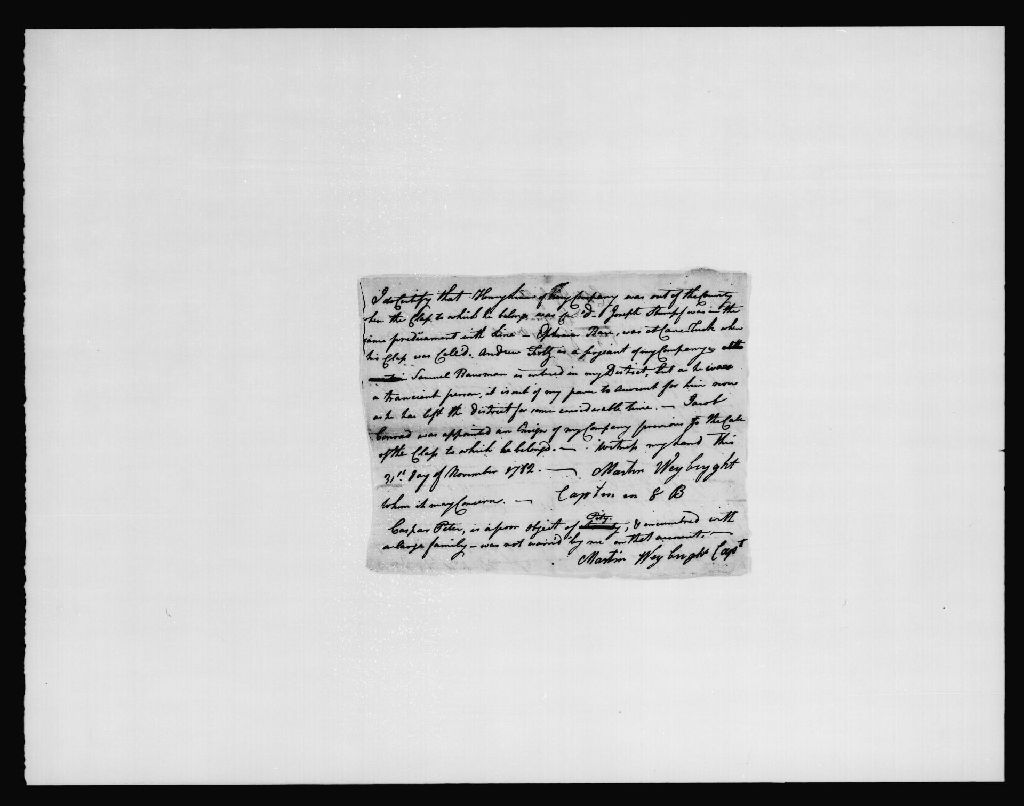 I do Certify that Henry of my Company was out of the County
when the Class to which he belongs was Joseph Stumpf was in the
same predicament with - Ephraim was at Camp when
his Class was Called. Andrew is a serjeant of my Company
Samuel is entered in my District, but as he
a transcient person, it is out of my power to account for him now
as he has left the district for some considerable time. — Jacob
Conrad was appointed an Ensign of my Company previous to the Call
of the Class to which he belonged. — Witness my hand this
31st day of November 1782. — Martin Weybryght
whom it may Concern. — Captin in 8 B
Caspar Peter, is a poor object of Pity, & incumbred with
a large family - was not warned by me on that account, —
Martin Weybright Capt